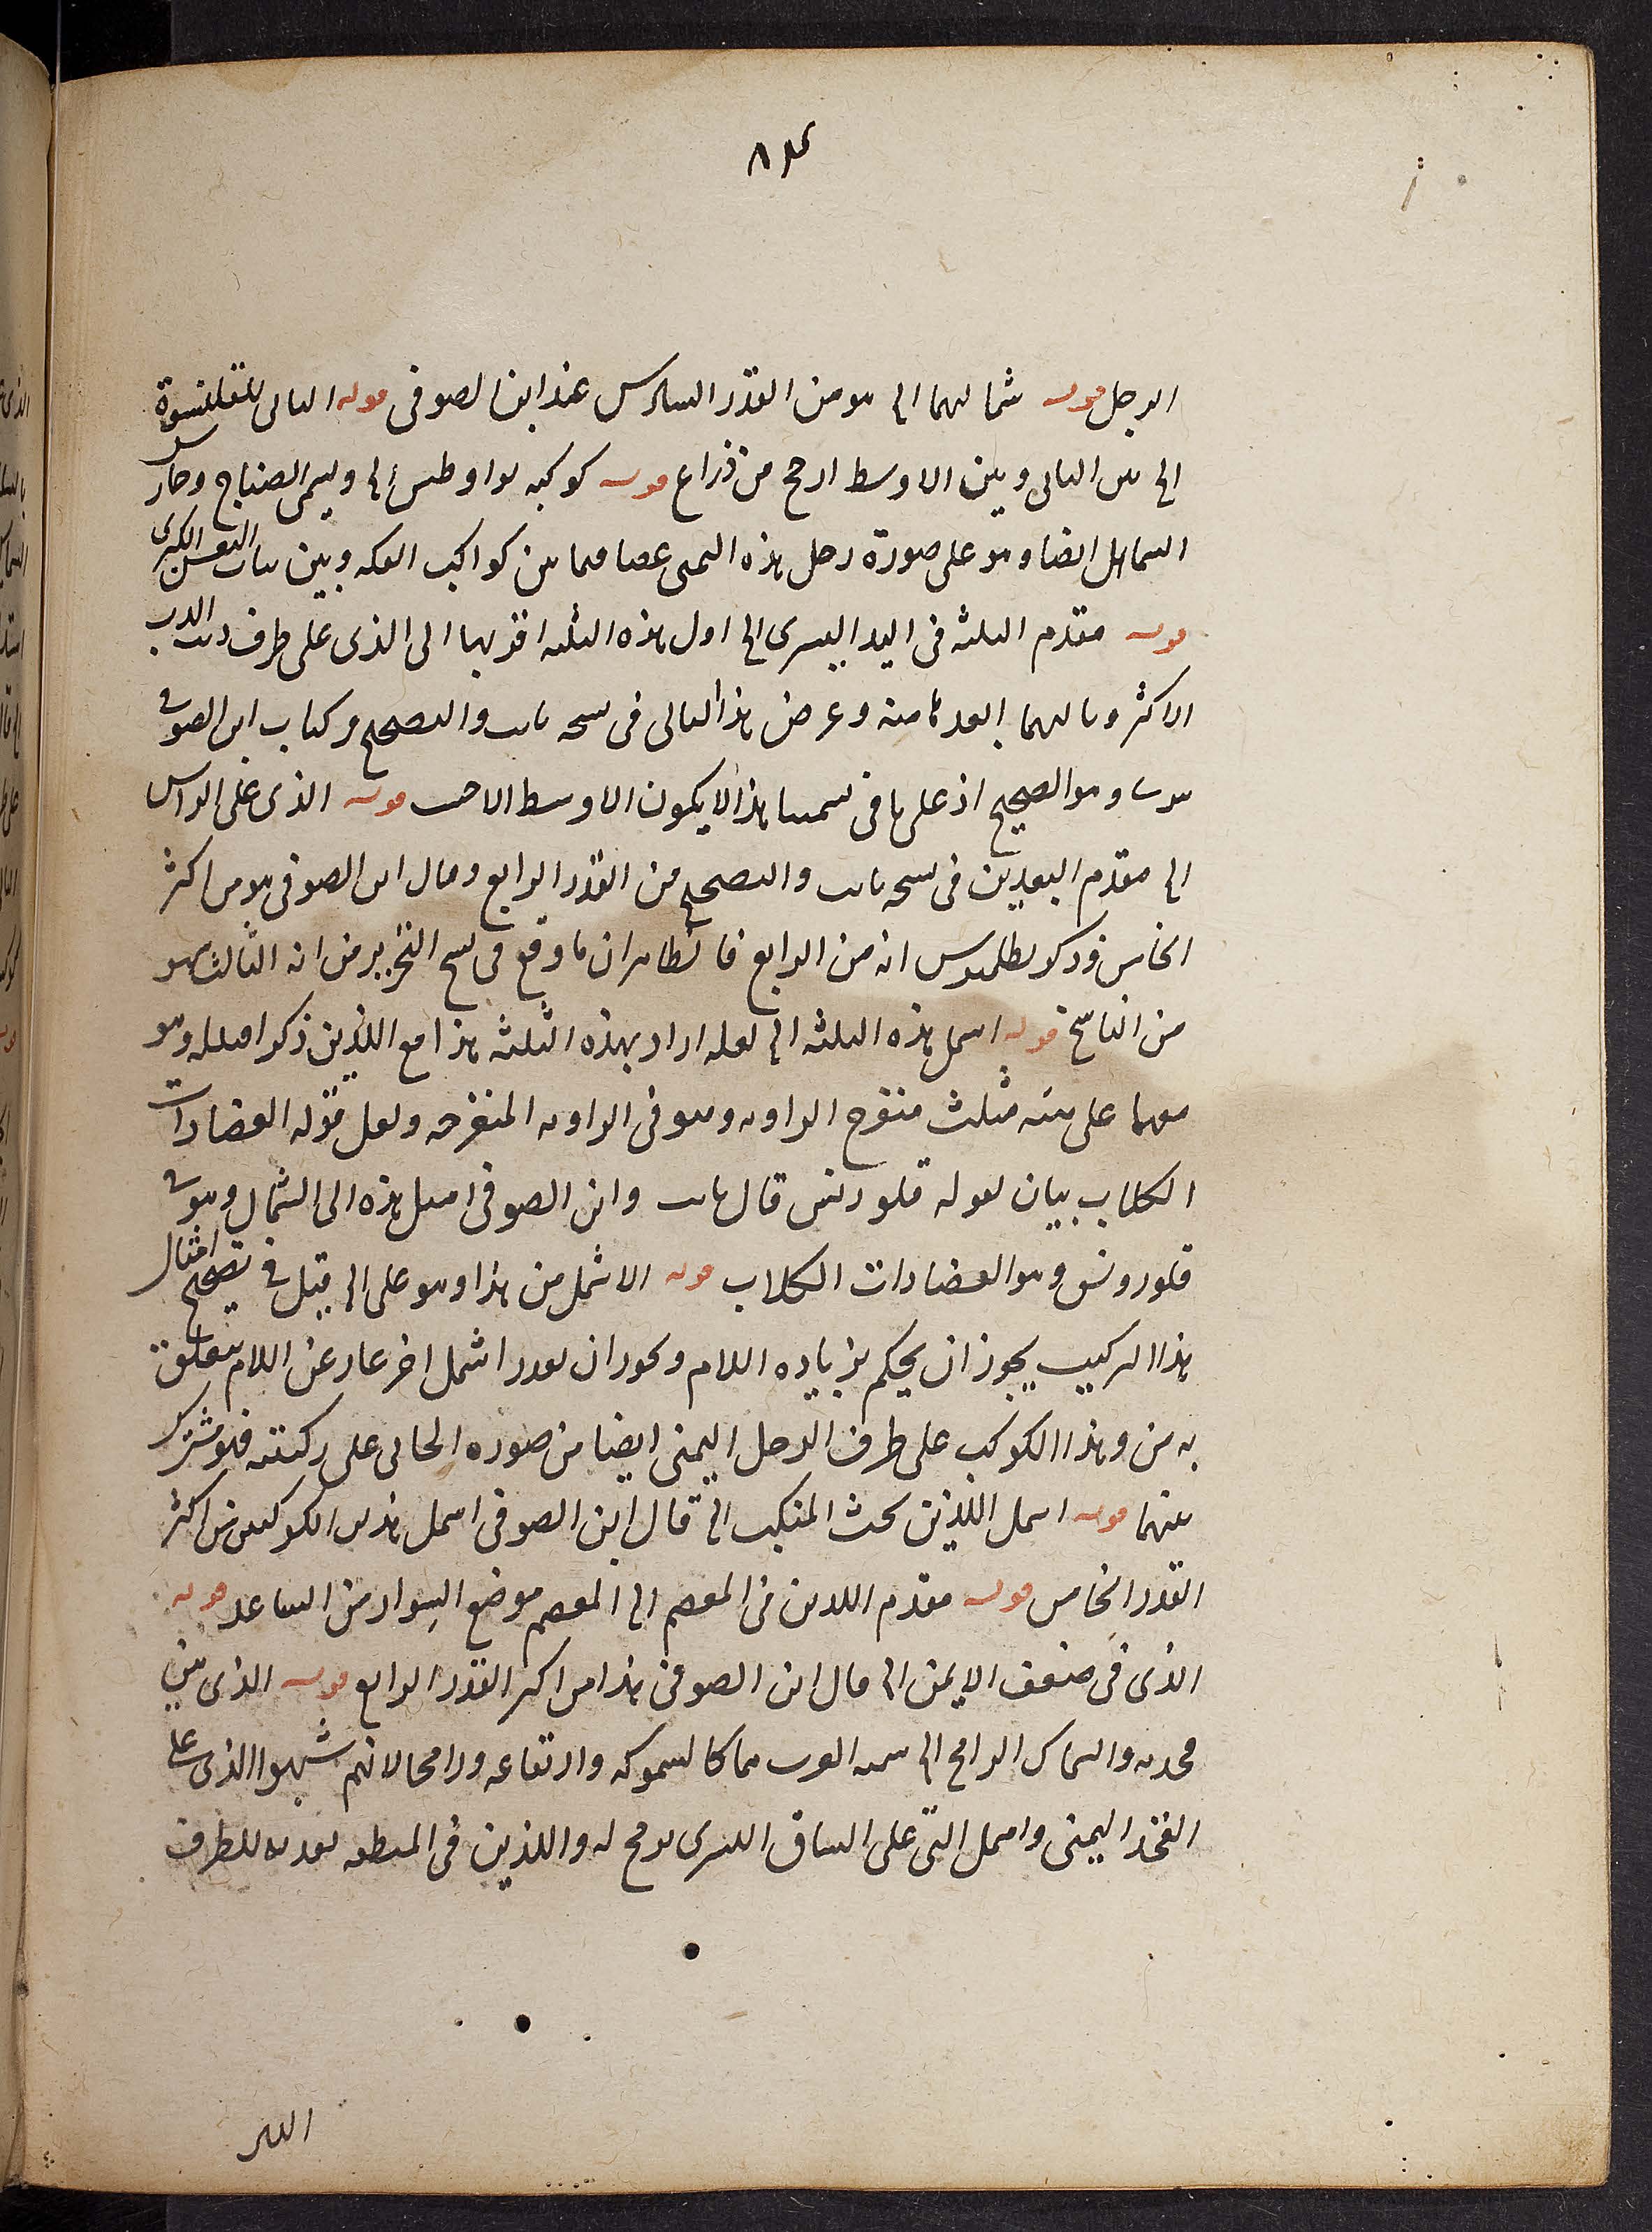 الرجل قوله شماليهما الخ هو من القدر السادس عند ابن الصوفى قوله التالى للقلنسوة
الخ بين التالى وبين الاوسط ارجح من ذراع قوله كوكبه بواوطس الخ ويسمى الصناج وحارس
الشمال ايضا وهو على صورة رجل بيده اليمنى عصا فيما بين كواكب الفكه وبين بنات النعش الكبرى
قوله مقدم الثلثة فى اليد اليسرى الخ اول هذه الثلثه اقربها الى الذى على طرف ذنب الدب
الاكثر وتاليهما ابعد ثامنه وعرض هذا التالى فى نسخه ثابت والتصحيح وكتاب ابن الصوفى
وهو الصحيح اذ على ما فى هذا لا يكون الاوسط قوله الذى على الراس
الخ مقدم البعدين فى نسخه ثابت والتصحيح من القدر الرابع وقال ابن الصوفى هو من اكثر
الخامس وذكر بطلميوس انه من الرابع فالظاهر ان ما وقع فى نسخ التحرير من انه الثالث سهو
من الناسخ قوله اشمل هذه الثلثه الخ لعله اراد بهذه الثلثة هذا مع اللذين ذكرا قبله وهو
معهما على هيئه مثلث منفرج الزاويه وهو فى الزاويه المنفرجه ولعل قوله العضادات
الكلاب بيان لقوله قلوروبس قال ثابت وابن الصوفى اميل هذه الى الشمال وهو فى
قلوروبس وهو العضادات الكلاب قوله الاشمل من هذا وهو على الخ قيل فى تصحيح امثال
هذا التركيب يجوز ان يحكم بزياده اللام ويجوز ان يقدر اشمل اخر عار عن اللام يتعلق
به من وهذا الكوكب على طرف الرجل اليمنى ايضا من صوره الجاثى على ركبته فهو مشترك
بينهما قوله اشمل اللذين تحت المنكب الخ قال ابن الصوفى اشمل هذين الكوكبين من اكثر
القدر الخامس قوله مقدم اللذين فى المعصم الخ المعصم موضع السوار من الساعد قوله
الذى فى الايمن الخ قال ابن الصوفى هذا من اكبر القدر الرابع قوله الذى بين
فخذيه والسماك الرامح الخ سمته العرب سماكا لسموكه وارتفاعه ورامحا لانهم شبهوا الذى على
الفخذ اليمنى واشمل التى على الساق اليسرى برمح له واللذين فى المنطقه للطرف